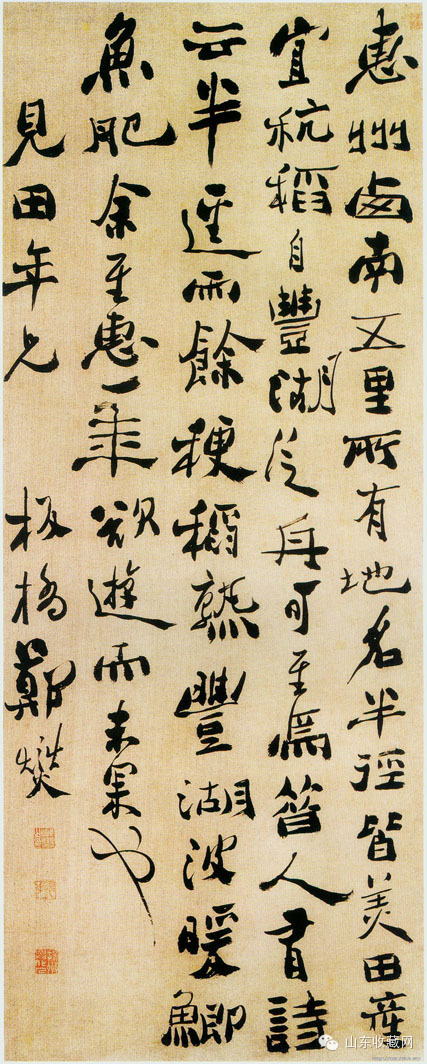 惠州西南五里所有地名半徑皆美田產
宜秔稻自豐湖泛舟可至焉昔人有詩
云半逕雨餘粳稻熟豐湖波暖鯽
魚肥余至惠一年欲遊而未果也
見田年兄 板橋鄭燮
山东收藏网